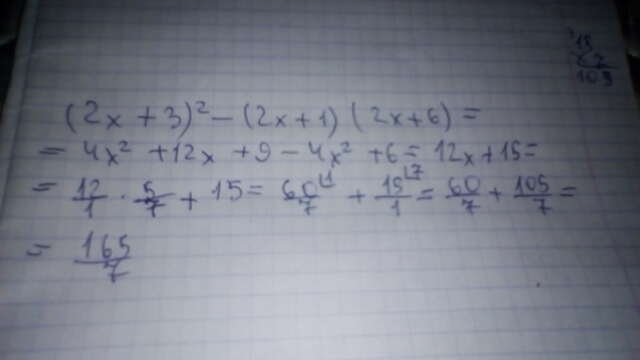 15
× 7
105
(2x + 3)² - (2x + 1) (2x + 6) =
= 4x² + 12x + 9 - 4x² + 6 = 12x + 15 =
= 12/1 · 5/7 + 15 = 60/7 ⌊1 + 15/1 ⌊7 = 60/7 + 105/7 =
= 165/7